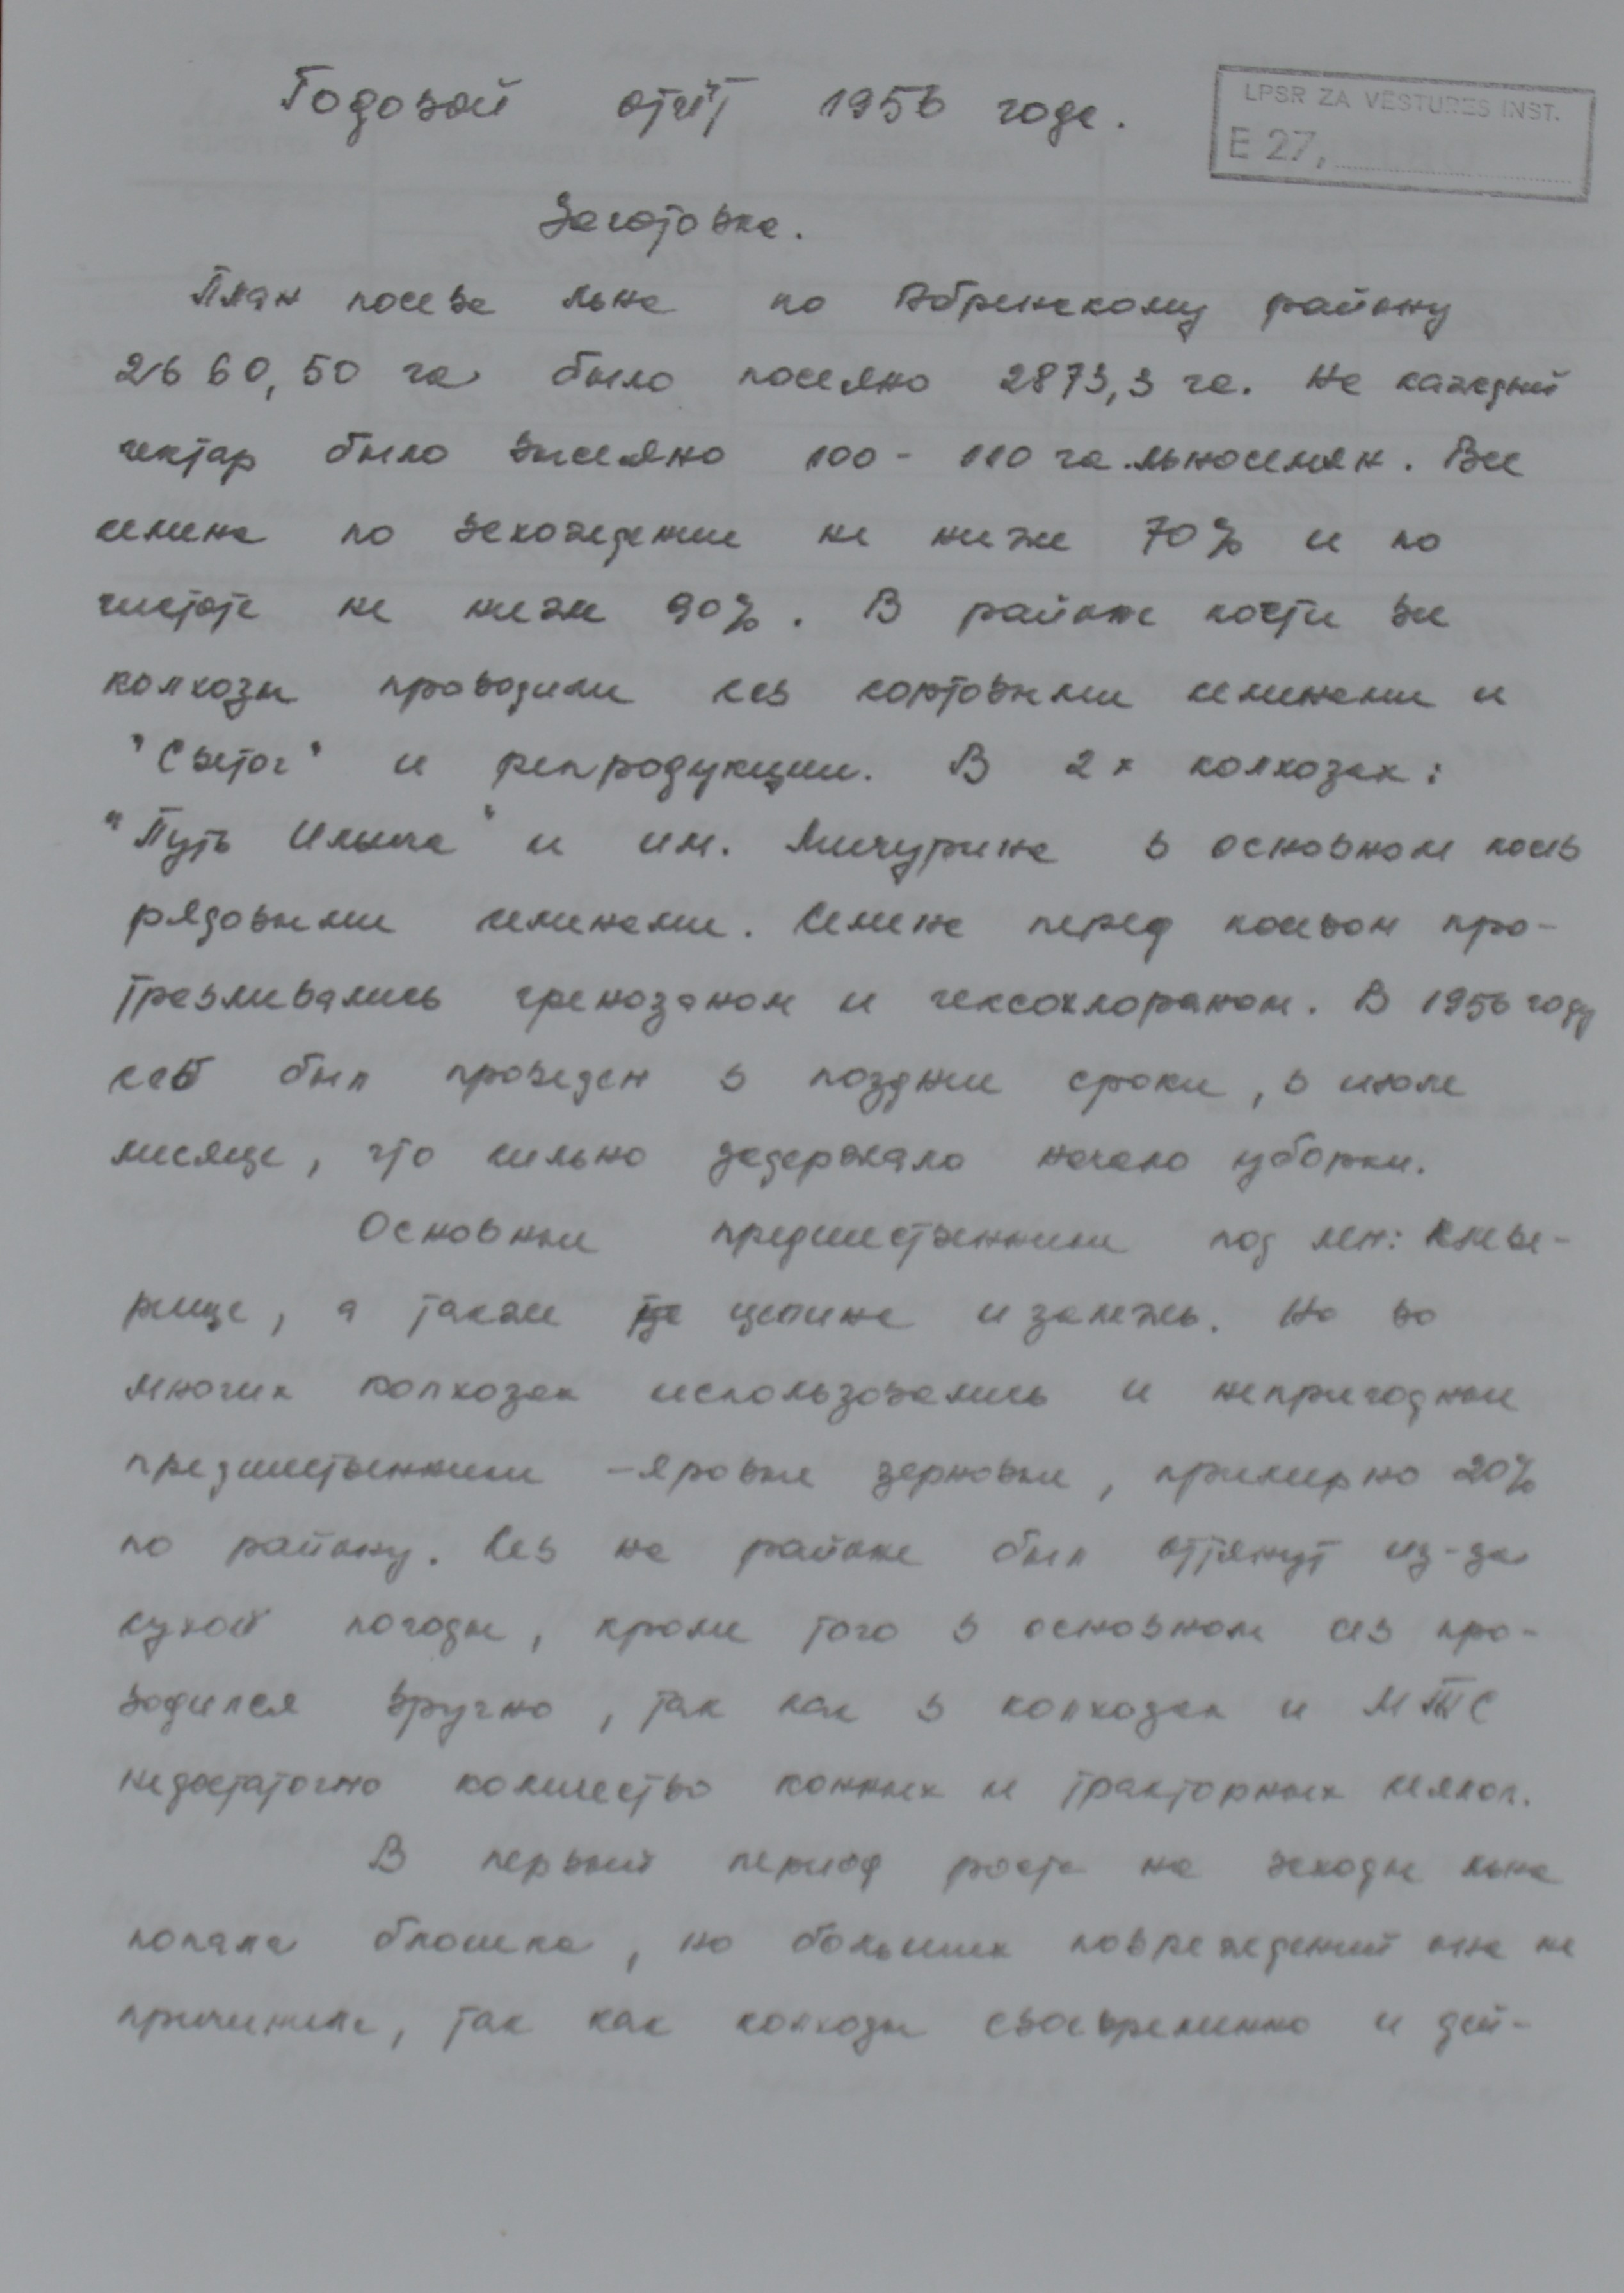 Годовой отчёт 1956 года.
LPSR ZA VĒSTURES INST.
E 27,
Заготовка.
План посева льна по Абренскому району
2660,50 га было посеяно 2873,3 га. На каждый
гектар было высеяно 100 - 110 га льносемян. Все
семена по всхождению не ниже 70% и по
чистоте не ниже 90%. В районе почти все
колхозы проводили сев сортовыми семенами и
"Светоч" и репродукции. В 2х колхозах:
"Путь Ильича" и им. Мичурина в основном посев
рядовыми семенами. Семена перед посевом про-
травливались гренозаном и гексохлораном. В 1956 году
сев был проведен в поздние сроки, в июле
месяце, что сильно задержало начало уборки.
Основные предшественники под лен: клеве-
рище, а также целина и залежь. Но во
многих колхозах использовались и непригодные
предшественники - яровые зерновые, примерно 20%
по району. Сев на районе был оттянут из-за
сухой погоды, кроме того в основном сев про-
водился вручно, так как в колхозах и МТС
недостаточно количество конных и тракторных сеялок.
В первый период роста на всходы льна
попала блошка, но больших повреждений она не
причинила, так как колхозы своевременно и дей-